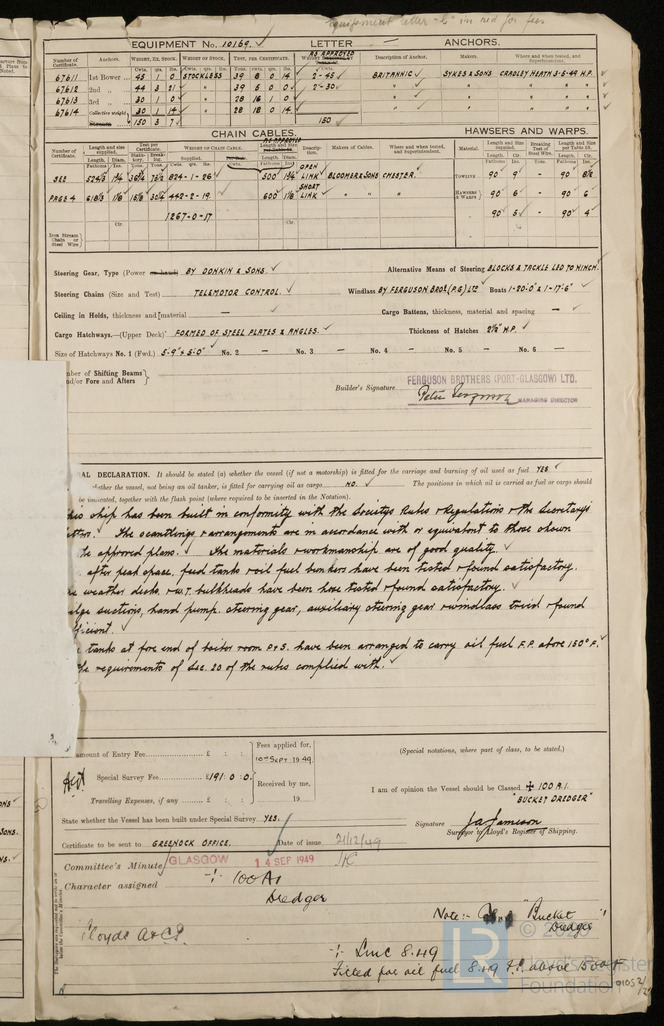 Equipment letter "b" in red for fees
EQUIPMENT No. 10169. LETTER — ANCHORS.
Number of Certificate. Anchors. WEIGHT, EX. STOCK. WEIGHT OF STOCK. TEST, PER CERTIFICATE. AS APPROVED Description of Anchor. Makers. Where and when tested, and Superintendent.
67611 1st Bower 45 1 0 STOCKLESS 39 8 0 14 2-45 BRITANNIC SYKES & SONS CRADLEY HEATH 3-5-49 H.P.
67612 2nd " 44 3 21 " 39 5 0 0 2-30 " " "
67613 3rd " 30 1 0 " 28 16 1 0 " " "
67614 Collective weight 30 1 14 " 28 18 0 14
Stream 150 3 7 150
CHAIN CABLES. HAWSERS AND WARPS.
Number of Certificate. Length and size supplied. Test per Certificate. WEIGHT OF CHAIN CABLE. Description. Makers of Cables. Where and when tested, and Superintendent. Material. Length and size supplied. Breaking Test of Steel Wire. Length and Size per Table 22.
SEE 824-1-26 300 1¾ OPEN LINK BLOOMER & SONS CHESTER. TOWLINE 90 9 - 90 8½
PAGE 4 442-2-19. 600 1⅛ SHORT LINK " " " HAWSERS & WARPS 90 6 - 90 6
1267-0-17 90 5 - 90 4
Iron Stream Chain or Steel Wire
Steering Gear, Type (Power or hand) BY DONKIN & SONS. Alternative Means of Steering BLOCKS & TACKLE LED TO WINCH.
Steering Chains (Size and Test) TELEMOTOR CONTROL. Windlass BY FERGUSON BROS. (P.G) LTD Boats 1-20'0" & 1-17'6"
Ceiling in Holds, thickness and material — Cargo Battens, thickness, material and spacing —
Cargo Hatchways.—(Upper Deck) FORMED OF STEEL PLATES & ANGLES. Thickness of Hatches 2½" W.P.
Size of Hatchways No. 1 (Fwd.) 5'-9" x 5'-0" No. 2 — No. 3 — No. 4 — No. 5 — No. 6 —
mber of Shifting Beams
nd/or Fore and Afters
Builder's Signature. FERGUSON BROTHERS (PORT-GLASGOW) LTD.
Peter Ferguson MANAGING DIRECTOR
AL DECLARATION. It should be stated (a) whether the vessel (if not a motorship) is fitted for the carriage and burning of oil used as fuel YES.
whether the vessel, not being an oil tanker, is fitted for carrying oil as cargo NO. The positions in which oil is carried as fuel or cargo should
be indicated, together with the flash point (where required to be inserted in the Notation).
his ship has been built in conformity with the Societys Rules & Regulations & the Secretary's
etters. The scantlings & arrangements are in accordance with or equivalent to those shown
he approved plans. The materials & workmanship are of good quality.
after peak space, feed tanks & oil fuel bunkers have been tested & found satisfactory.
e weather decks, & W.T. bulkheads have been hose tested & found satisfactory.
lge suctions, hand pump, steering gear, auxiliary steering gear & windlass tried & found
ficient.
tanks at fore end of boiler room P & S. have been arranged to carry oil fuel F.P. above 150° F.
he requirements of Sec. 20 of the rules complied with.
amount of Entry Fee £ : : Fees applied for, 10th SEPT 1949. (Special notations, where part of class, to be stated.)
Special Survey Fee £191 : 0 : 0.
Received by me, I am of opinion the Vessel should be Classed ✠ 100 A.1.
Travelling Expenses, if any £ : : 19 "BUCKET DREDGER"
State whether the Vessel has been built under Special Survey YES. Signature J.A. Jameson
Surveyor to Lloyd's Register of Shipping.
Certificate to be sent to GREENOCK OFFICE. Date of issue 21/12/49
Committee's Minute GLASGOW 14 SEP 1949
Character assigned ✠ 100A1
Dredger
Note:- "Bucket Dredger"
Lloyds A & C.P.
✠ LMC 8.49
Fitted for oil fuel 8.49 F.P. above 150°F
© 2020
LR Lloyd's Register Foundation